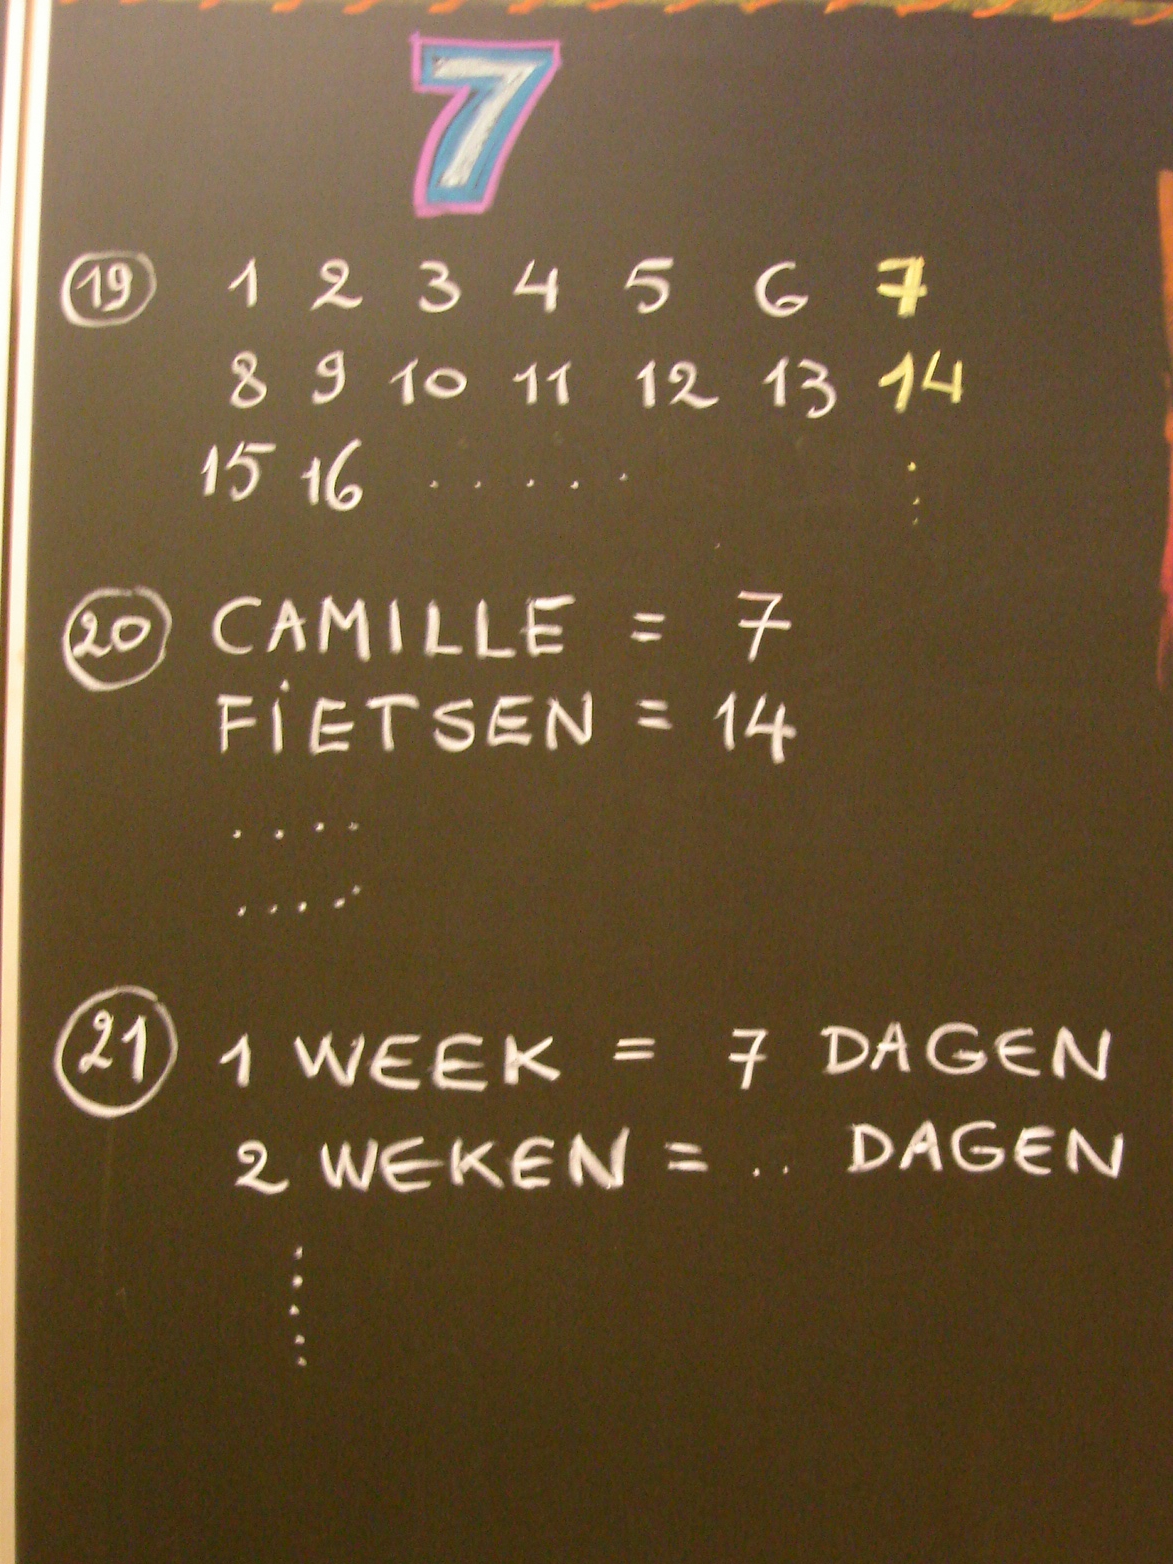 7
19 1 2 3 4 5 6 7
8 9 10 11 12 13 14
15 16 ..... :
20 CAMILLE = 7
FiETSEN = 14
....
....
21 1 WEEK = 7 DAGEN
2 WEKEN = .. DAGEN